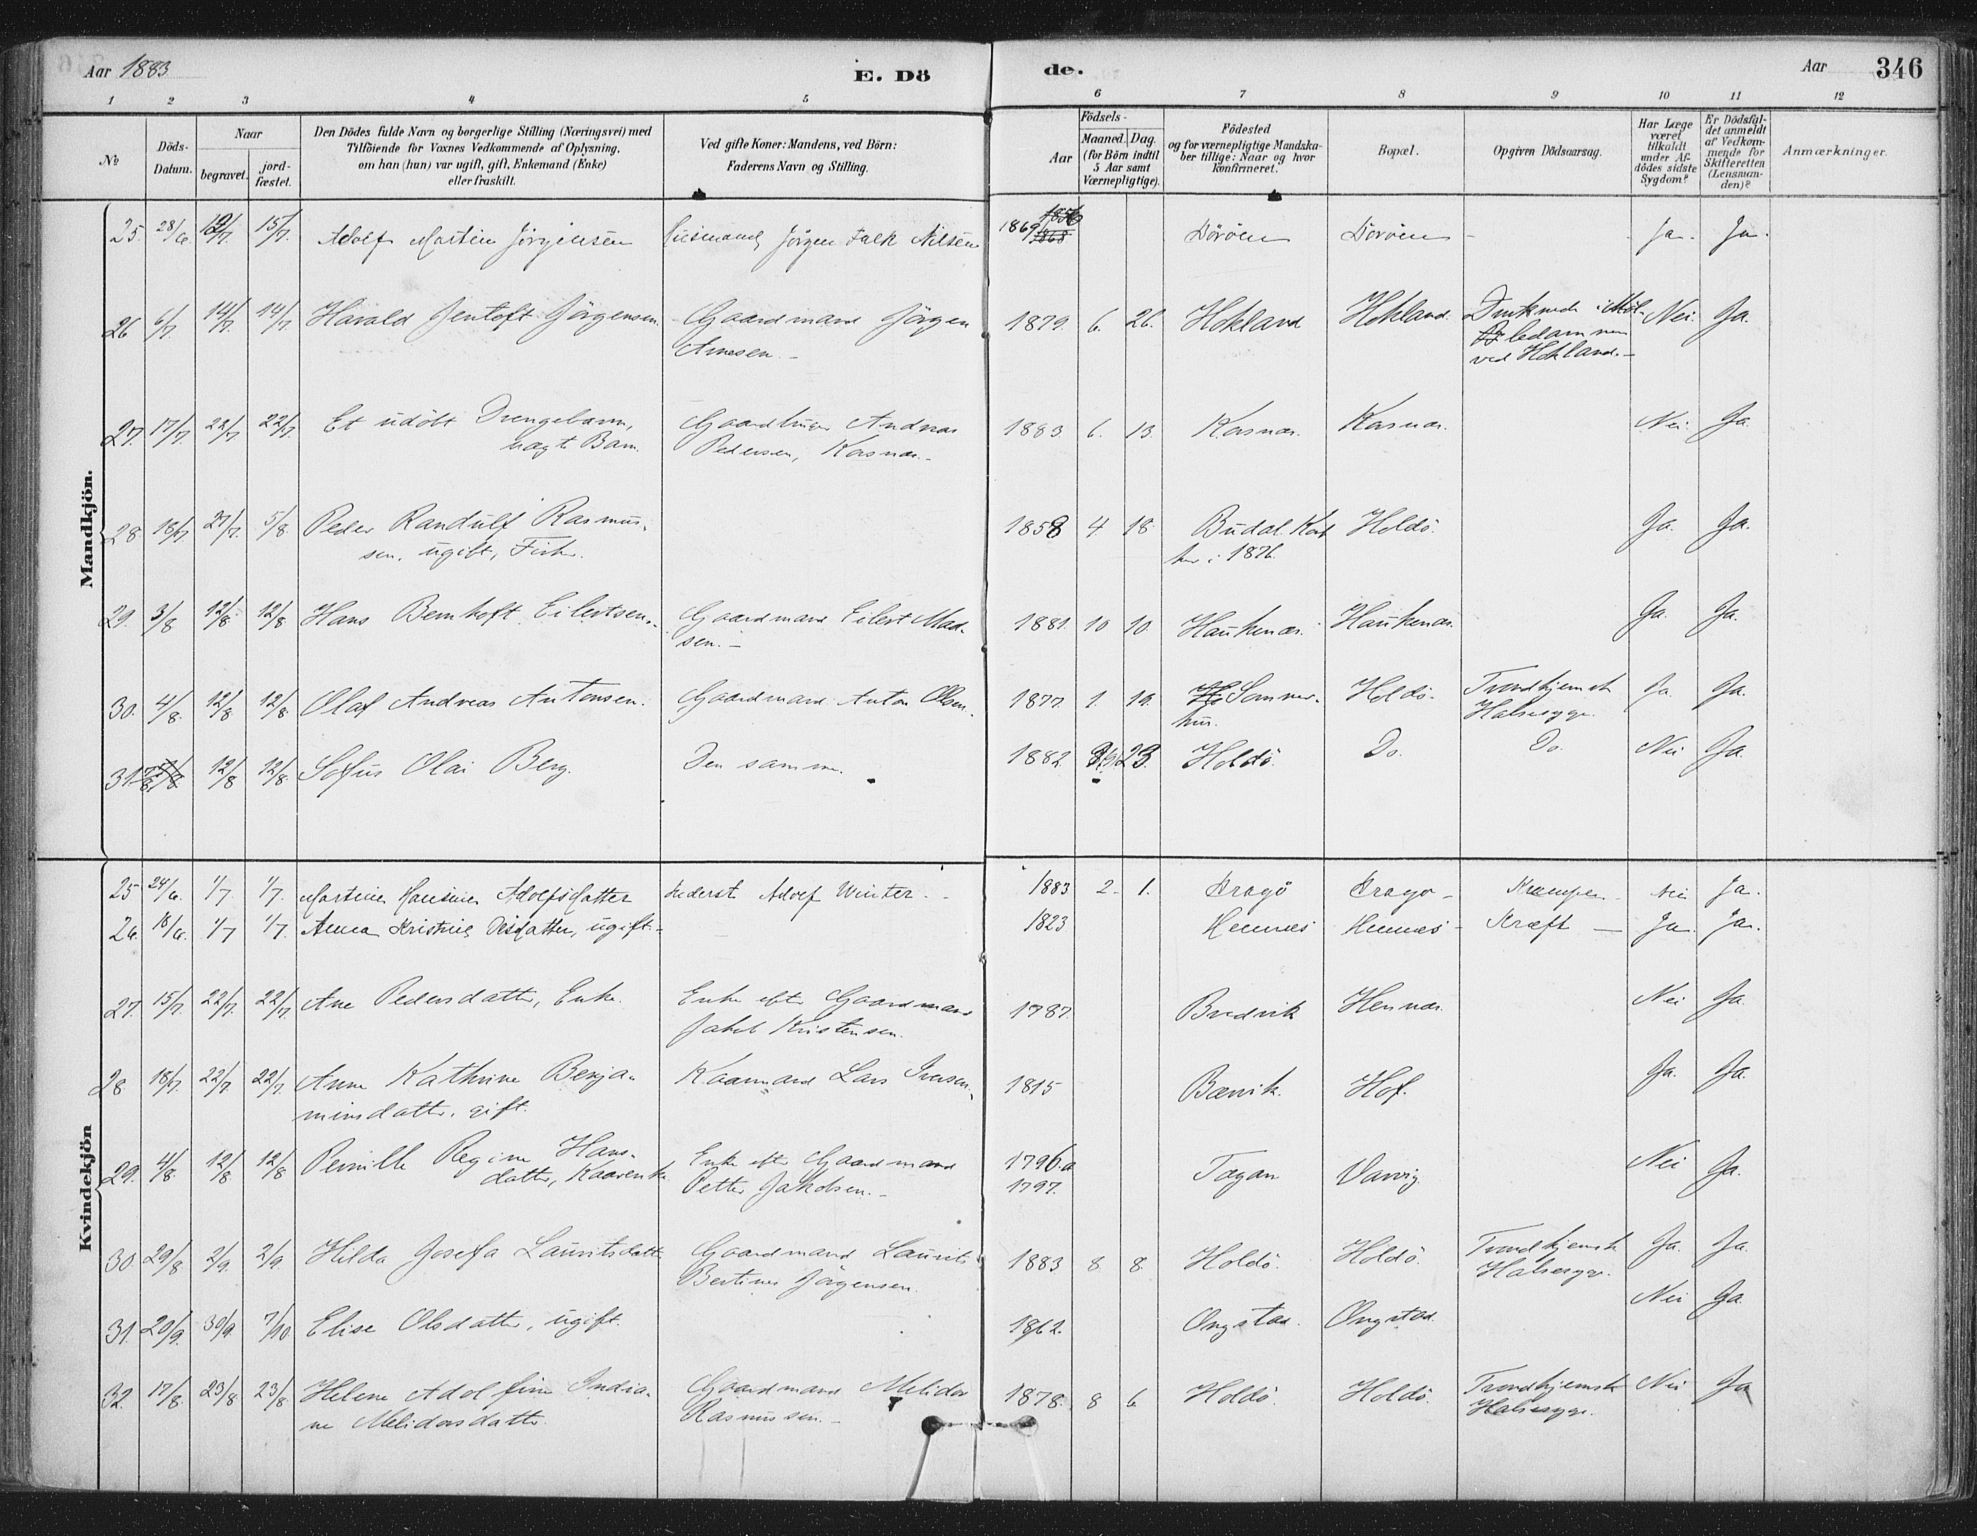 Aar 1883 E. Dö de. Aar 346
1 2 3 4 5 6 7 8 9 10 11 12
No
Döds-Datum.
Naar
begravet. jord-fæstet.
Den Dödes fulde Navn og borgerlige Stilling (Næringsvei) med
Tilföiende for Voxnes Vedkommende af Oplysning,
om han (hun) var ugift, gift, Enkemand (Enke)
eller fraskilt.
Ved gifte Koner: Mandens, ved Börn:
Faderens Navn og Stilling.
Födsels-
Aar Maaned. Dag.
(for Börn indtil
5 Aar samt
Værnepligtige).
Födested
og for værnepligtige Mandska-
ber tillige: Naar og hvor
konfirmeret.
Bopæl.
Opgiven Dödsaarsag.
Har Læge
været
tilkaldt
under Af-
dödes sidste
Sygdom?
Er Dödsfal-
det anmeldt
af Vedkom-
mende for
Skifteretten
(Lensman-
den)?
Anmærkninger.
Mandkjön.
25. 28/6 12/7 15/7. Adolf Martin Jörgensen Husmand Jörgen Falk Nilsen 1869 1868 Doröen Doröen Ja. Ja.
26 6/7. 14/7. 14/7 Harald Jentoft Jörgensen. Gaardmand Jörgen 1879. 6. 26. Hokland Hokland. Druknede i Möl- Nei. Ja.
Arnesen. ledammen
ved Hokland.
27. 17/7 22/7 22/7. Et udöbt Drengebarn, Gaardbruger Andreas 1883. 6. 13. Kasnæs. Kasnæs. Nei. Ja.
uægt Barn. Pedersen, Kasnæs.
28. 18/7. 27/7. 5/8. Peder Randulf Rasmus- 1858 4 18. Budal. Konf. Holdö. Ja. Ja.
sen, ugift, Fisker. her i 1876.
29. 3/8 12/8 12/8 Hans Bernhoft Eilertsen. Gaardmand Eilert Mad- 1881. 10 10. Haukenæs. Haukenæs. Ja. Ja.
sen.
30. 4/8. 12/8 12/8. Olaf Andreas Antonsen. Gaardmand Anton Olsen. 1877. 1. 19. Sommer- Holdö. Trondhjemsk Ja. Ja.
hus. Halsesyge.
31. 12/8 12/8 Sofus Olai Berg. Den samme. 1882. 23. Holdö. Do. Do. Nei Ja.
Kvindekjön
25 24/6. 1/7. 1/7. Martine Hansine Adolfsdatter Inderst Adolf Winter. 1883 2. 1. Aragö Aragö Krampe Nei Ja.
26. 18/6. 1/7 1/7. Anna Kristine Disdatter, ugift. 1823. Hennæs Hennæs Kræft Ja. Ja.
27. 15/7. 22/7. 22/7. Ane Pedersdatter, Enke. Enke efter Gaardmand 1787. Bredvik Hennæs. Nei Ja.
Jakob Kristensen.
28 18/7. 22/7 22/7. Anne Kathrine Benja- Kaarmand Lars Iversen. 1815 Bærvik. Hof. Ja. Ja.
minsdatter, gift.
29. 4/8. 12/8 12/8 Pernille Regine Hans- Enke efter Gaardmand 1796 a Tagan Varvig. Nei Ja.
datter, Kaarenke Petter Jakobsen. 1797.
30. 29/8 2/9. 2/9. Hilda Josefa Lauritsdatter Gaardmand Laurits 1883 8. 8. Holdö. Holdö. Trondhjemsk Ja. Ja.
Bertines Jörgensen. Halsesyge.
31. 20/9. 30/9. 7/10 Elise Olsdatter, ugift. 1862. Ongstad. Ongstad. Nei Ja.
32. 17/8. 23/8 23/8 Helene Adolfine India- Gaardmand Melidor 1878. 8 6 Holdö. Holdö. Trondhjemsk Nei Ja
ne Melidorsdatter. Rasmussen. Halsesyge.